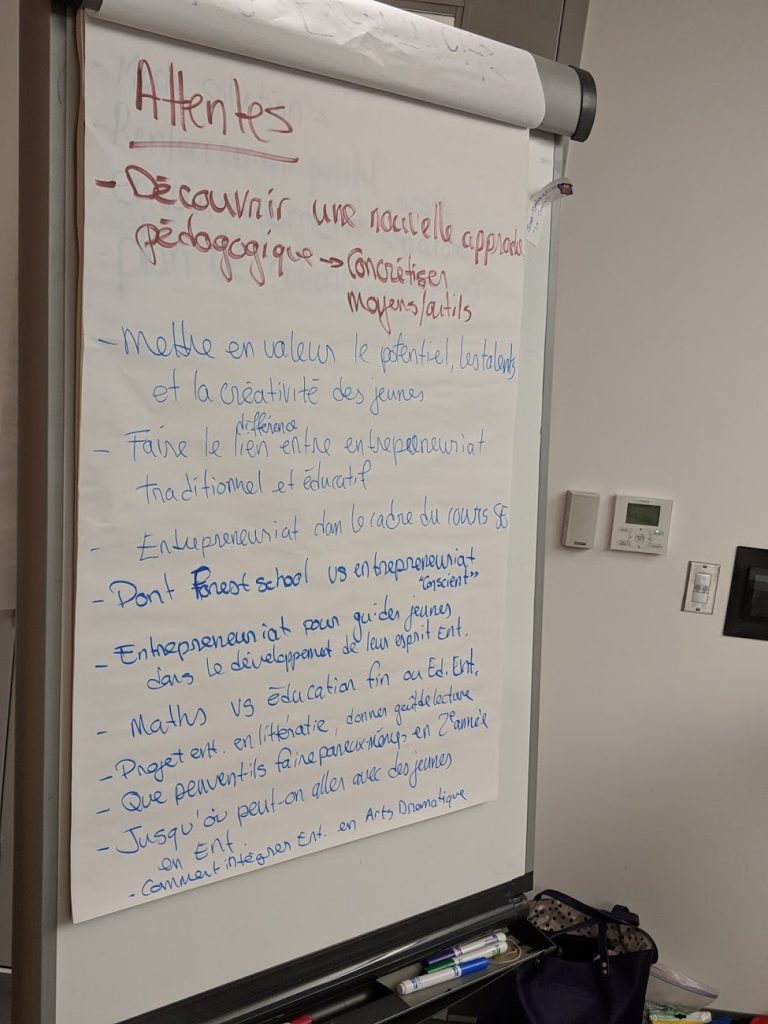 Attentes
- Découvrir une nouvelle approche
pédagogique → Concrétiser
moyens/outils
- Mettre en valeur le potentiel, les talents
et la créativité des jeunes
différence
- Faire le lien entre entrepreneuriat
traditionnel et éducatif
- Entrepreneuriat dans le cadre du cours SE
- Pont Forest school vs entrepreneuriat
"conscient"
- Entrepreneuriat pour guider jeunes
dans le développement de leur esprit Ent.
- Maths vs éducation fin ou Ed. Ent.
- Projet ent. en littératie, donner goût de lecture
- Que peuvent-ils faire par eux-mêmes en 2e année
- Jusqu'où peut-on aller avec des jeunes
en Ent.
- Comment intégrer Ent. en Arts Dramatique